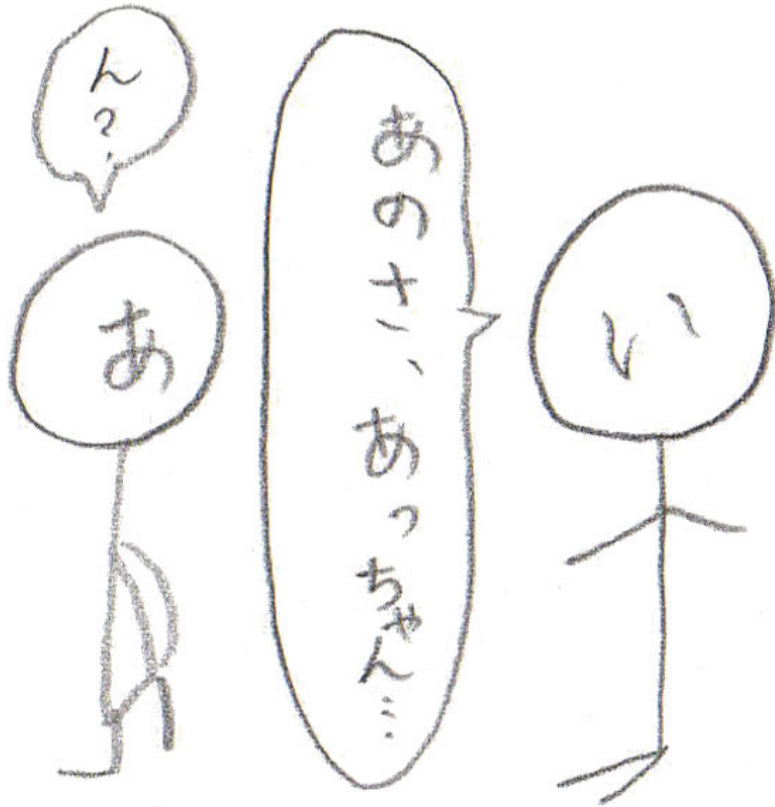 い
あのさ、あっちゃん…
ん?
あ